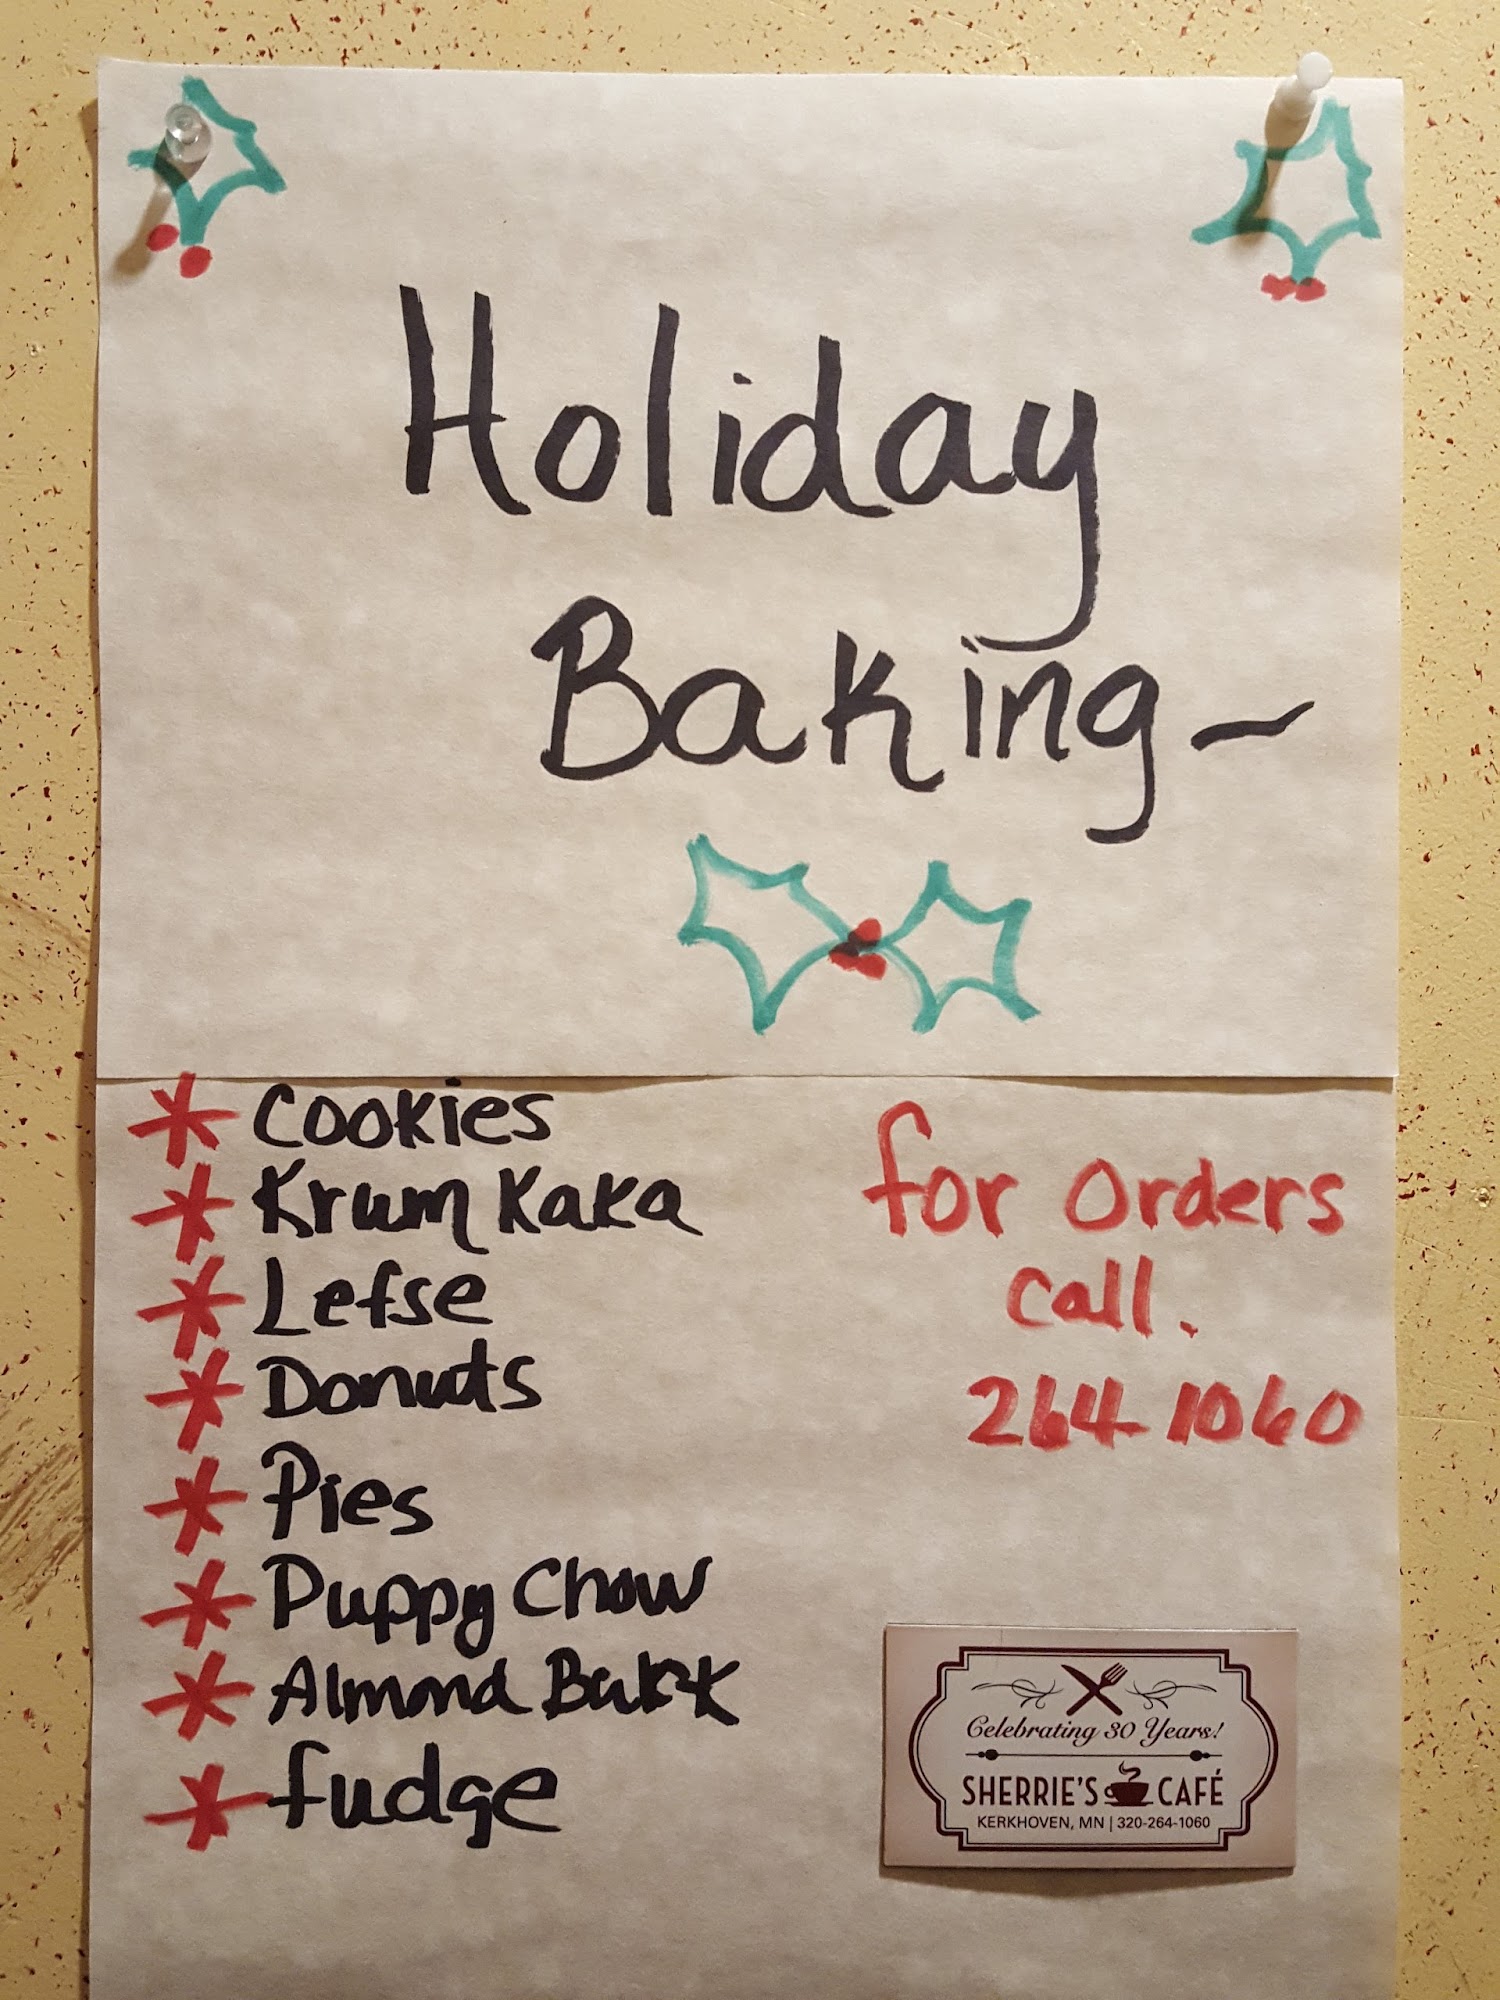 Holiday
Baking ~
* Cookies
* Krum Kaka
* Lefse
* Donuts
* Pies
* Puppy Chow
* Almond Bark
* fudge
for Orders
call.
264-1060
Celebrating 30 Years!
SHERRIE'S CAFÉ
KERKHOVEN, MN | 320-264-1060